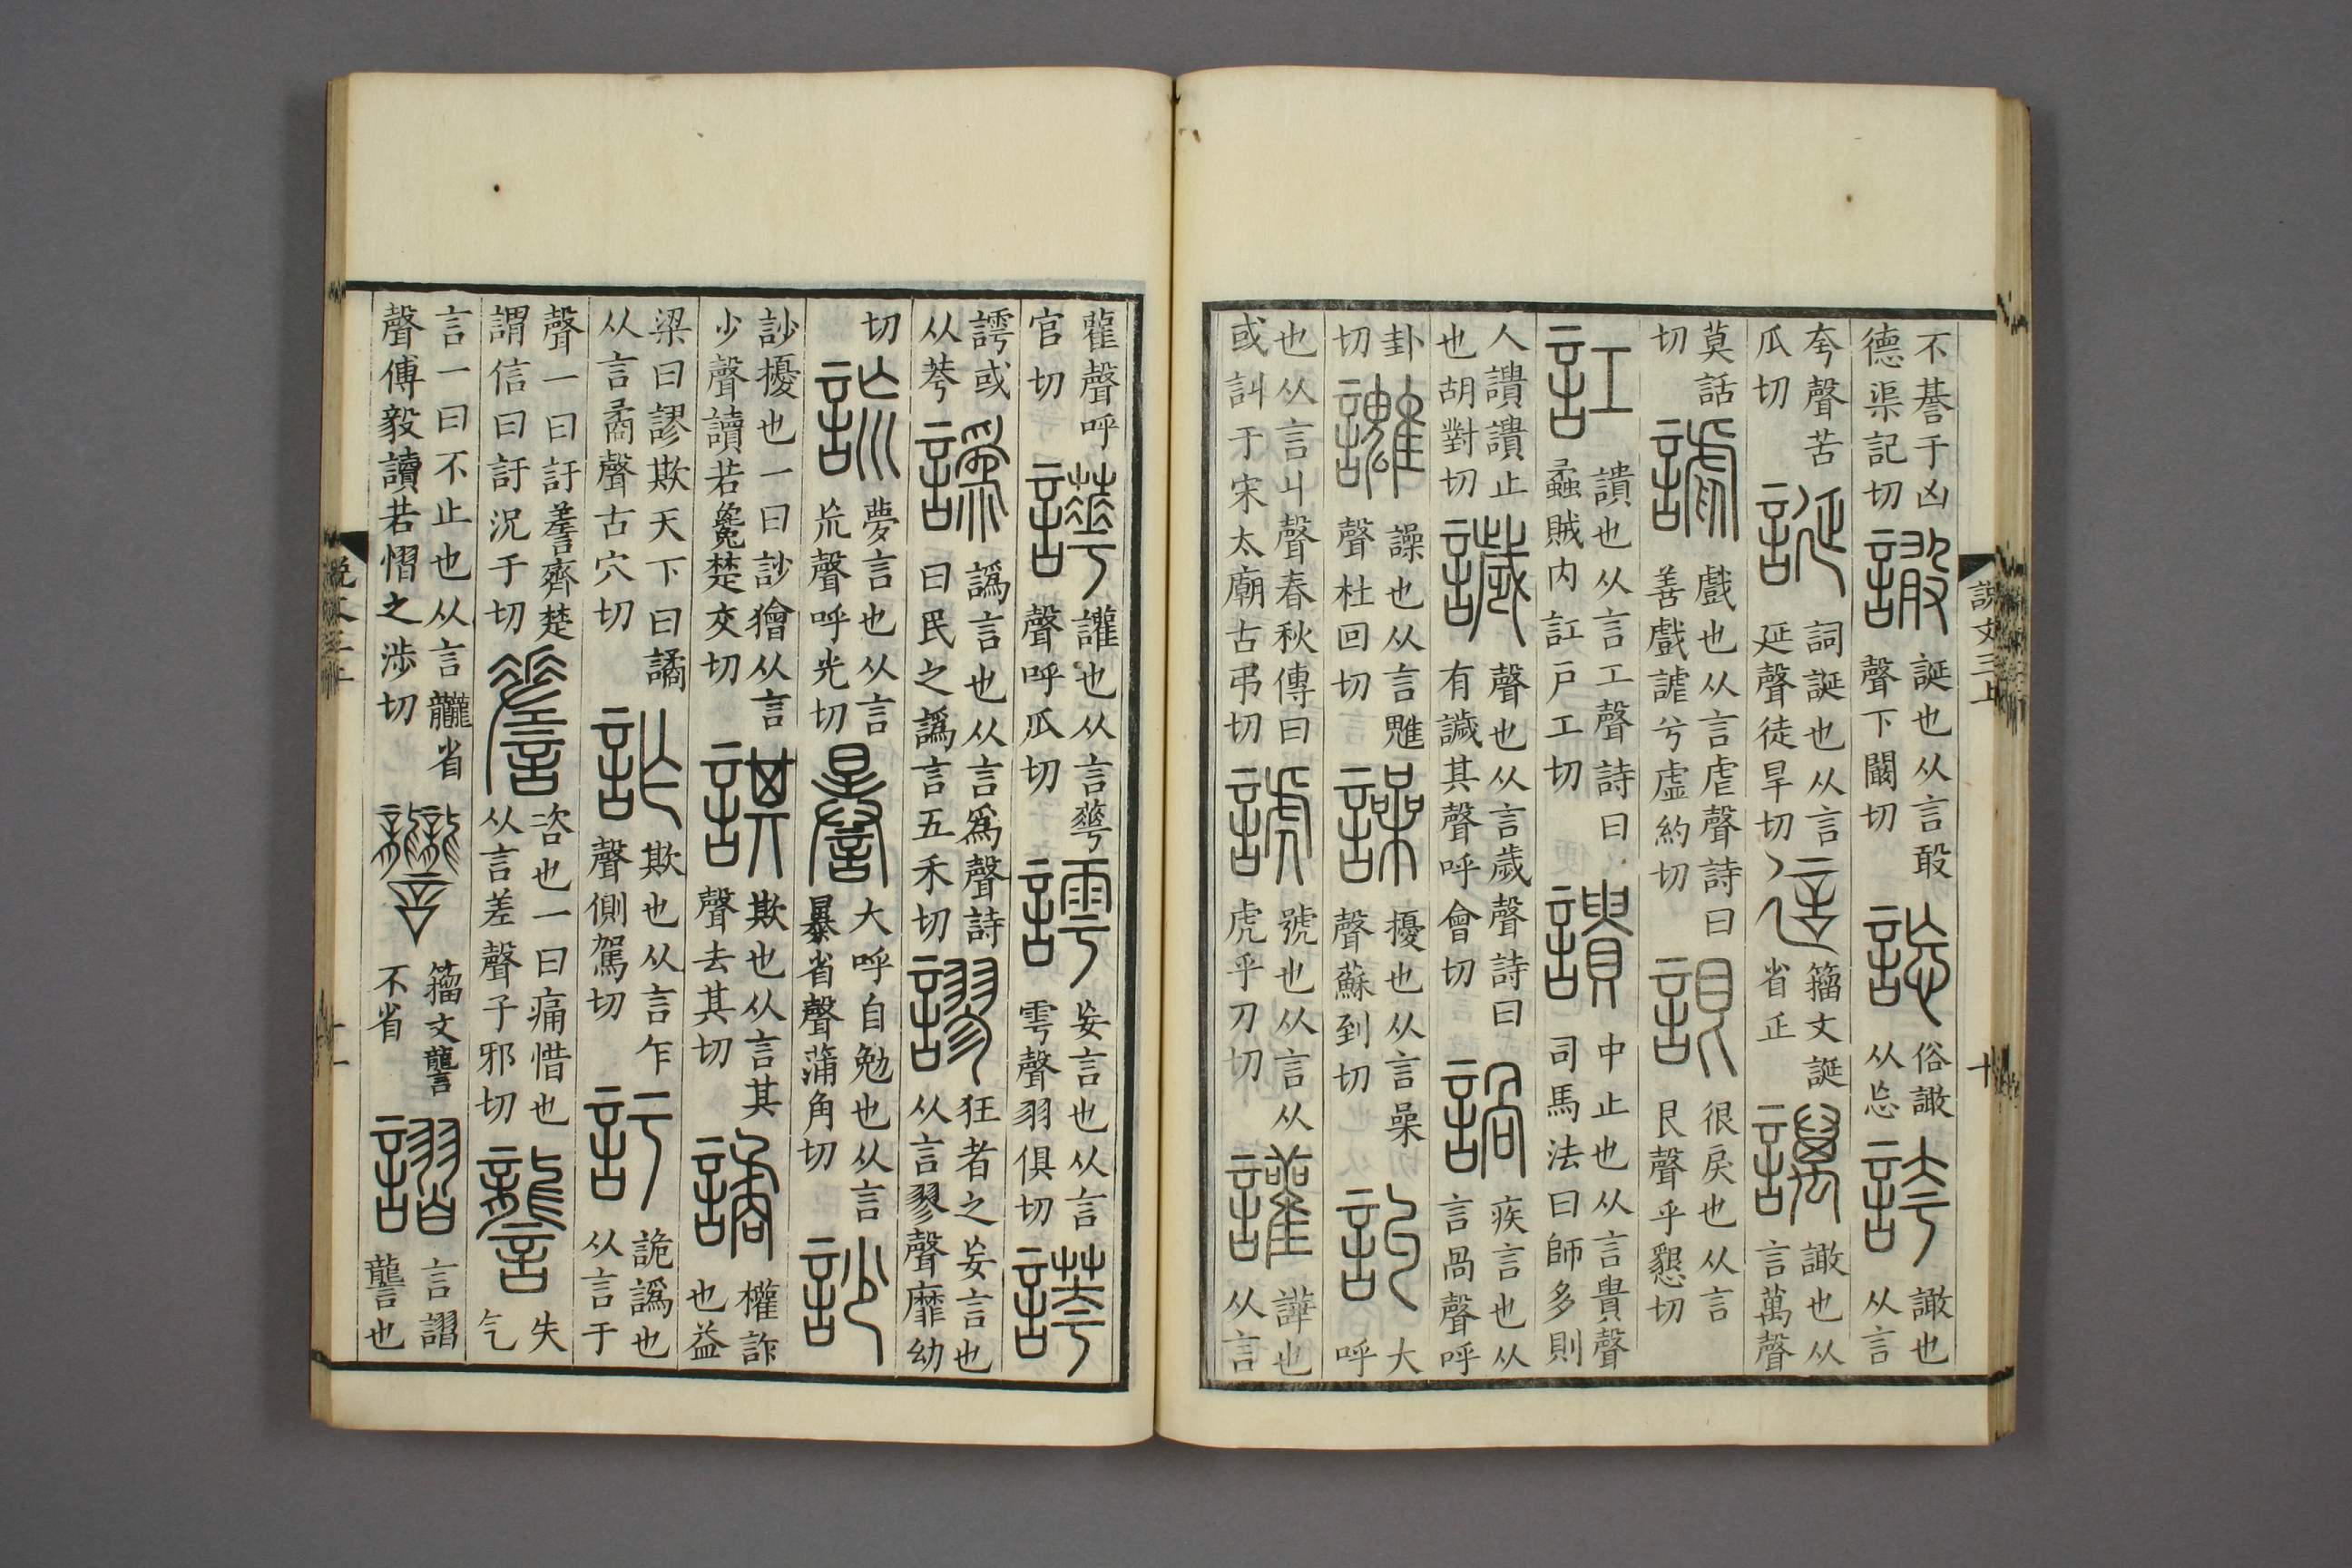 不諅于凶德渠記切譀誕也从言敢聲下闞切𧩪俗譀从忘誇譀也从言
夸聲苦瓜切誕詞誕也从言延聲徒旱切𢓋籀文誕省正譪譀也从言萬聲
莫話切謔戲也从言虐聲詩曰善戲謔兮虛約切詪很戾也从言艮聲乎懇切
訌讃也从言工聲詩曰蟊賊内訌戶工切讀中止也从言貴聲司馬法曰師多則
人讀讀止也胡對切䜋聲也从言歲聲詩曰有䜋其聲呼會切䛻疾言也从言咼聲呼
卦切䜅譟也从言魋聲杜回切譟擾也从言喿聲蘇到切訆大呼
也从言丩聲春秋傳曰或訆于宋太廟古弔切諕號也从言从虎乎刀切讙譁也从言
雚聲呼官切譁讙也从言蕐聲呼瓜切謣妄言也从言雩聲羽俱切䛢
謣或从荂譌譌言也从言爲聲詩曰民之譌言五禾切謬狂者之妄言也从言翏聲靡幼
切䛊夢言也从言㠩聲呼光切謈大呼自勉也从言暴省聲蒲角切訬
訬擾也一曰訬獪从言少聲讀若毚楚交切諆欺也从言其聲去其切譎權詐也益
梁曰謬欺天下曰譎从言矞聲古穴切詐欺也从言乍聲側駕切訏詭譌也从言于
聲一曰訏䜁齊楚謂信曰訏況于切䜁咨也一曰痛惜也从言差聲子邪切讋失气
言一曰不止也从言龖省聲傅毅讀若慴之涉切𧮩籀文讋不省謵言謵讋也
說文三上
十
說文三上
十一